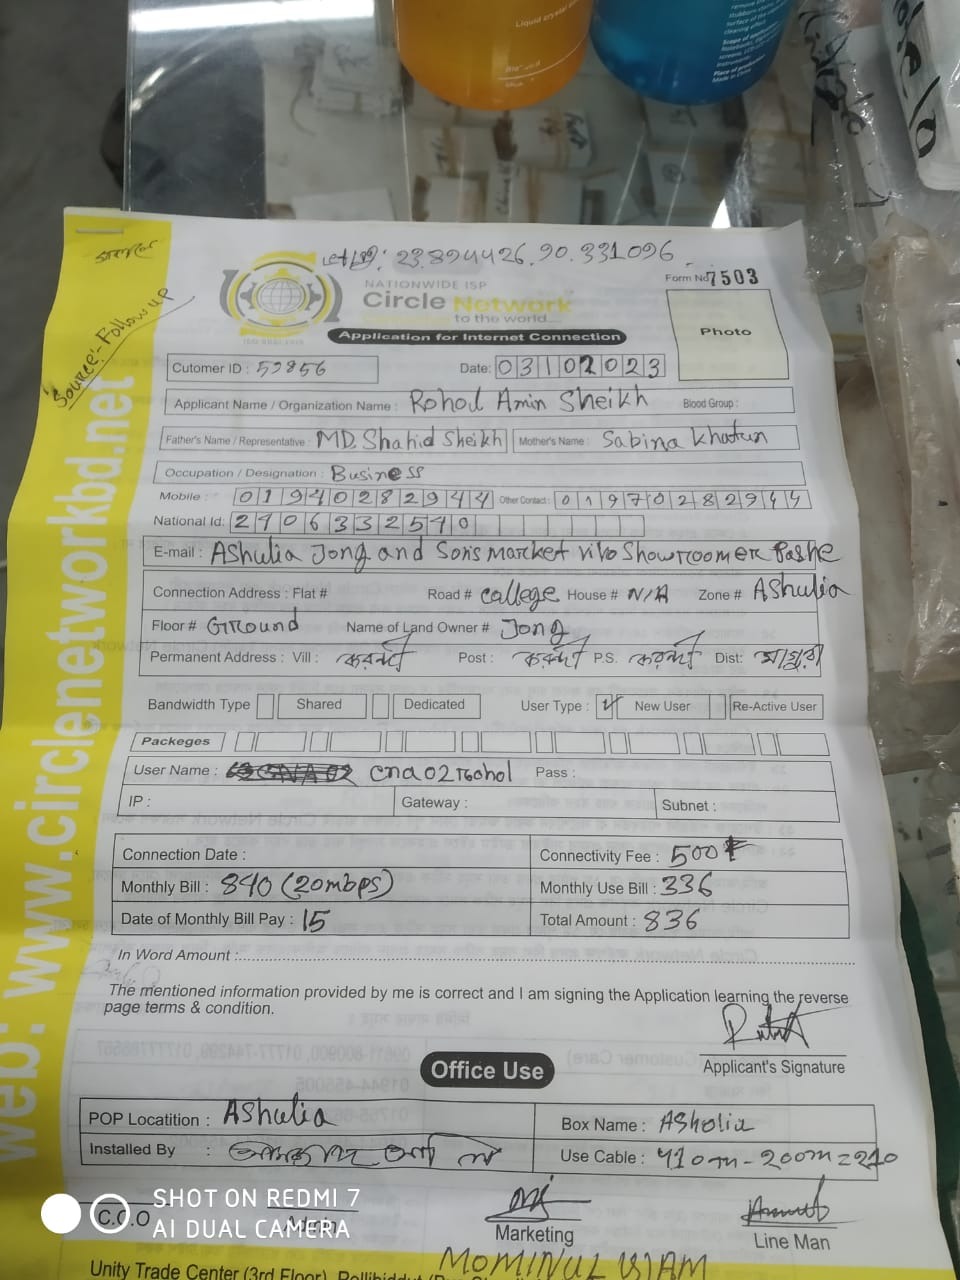 Liquid crystal
Place of production
Made in China
23.894426, 90.331096
NATIONWIDE ISP
Form No 7503
Circle Network
to the world...
Application for Internet Connection
Photo
Source:- Follow up
Cutomer ID : 52856
Date: 03102023
Applicant Name / Organization Name : Rohol Amin Sheikh Blood Group :
Father's Name / Representative : MD. Shahid Sheikh Mother's Name : Sabina Khatun
Occupation / Designation : Business
Mobile : 01940282944 Other Contact : 01970282944
National Id: 2406332540
E-mail : Ashulia Jong and Sons Market vivo Showroomer Pashe
Connection Address : Flat # Road # college House # N/A Zone # Ashulia
Floor # Ground Name of Land Owner # Jong
Permanent Address : Vill : Post : P.S. Dist:
Bandwidth Type Shared Dedicated User Type : New User Re-Active User
Packeges
User Name : cna02rohol Pass :
IP : Gateway : Subnet :
Connection Date : Connectivity Fee : 500
Monthly Bill : 840 (20mbps) Monthly Use Bill : 336
Date of Monthly Bill Pay : 15 Total Amount : 836
In Word Amount :
The mentioned information provided by me is correct and I am signing the Application learning the reverse
page terms & condition.
Applicant's Signature
Office Use
POP Locatition : Ashulia Box Name : Asholia
Installed By : Use Cable : 410m - 200m = 210
C.O.O
Marketing
Line Man
MOMINUL ISLAM
Unity Trade Center (3rd Floor)
web: www.circlenetworkbd.net
SHOT ON REDMI 7
AI DUAL CAMERA